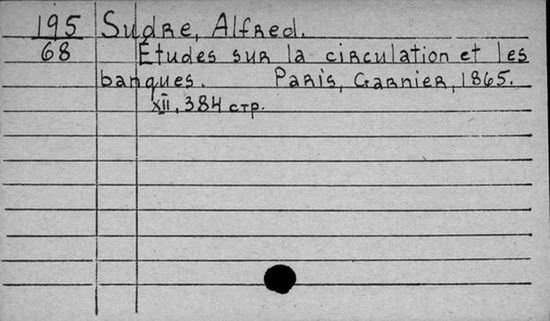 195 Sudre, Alfred.
68 Études sur la circulation et les
banques. Paris, Garnier, 1865.
XII, 384 стр.